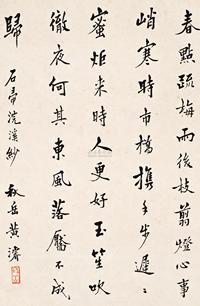 春點疏梅雨後枝翦燈心事
峭寒時市橋攜手步遲遲
蜜炬來時人更好玉笙吹
徹夜何其東風落靨不成
歸
石帚浣溪紗
叔岳黃濬